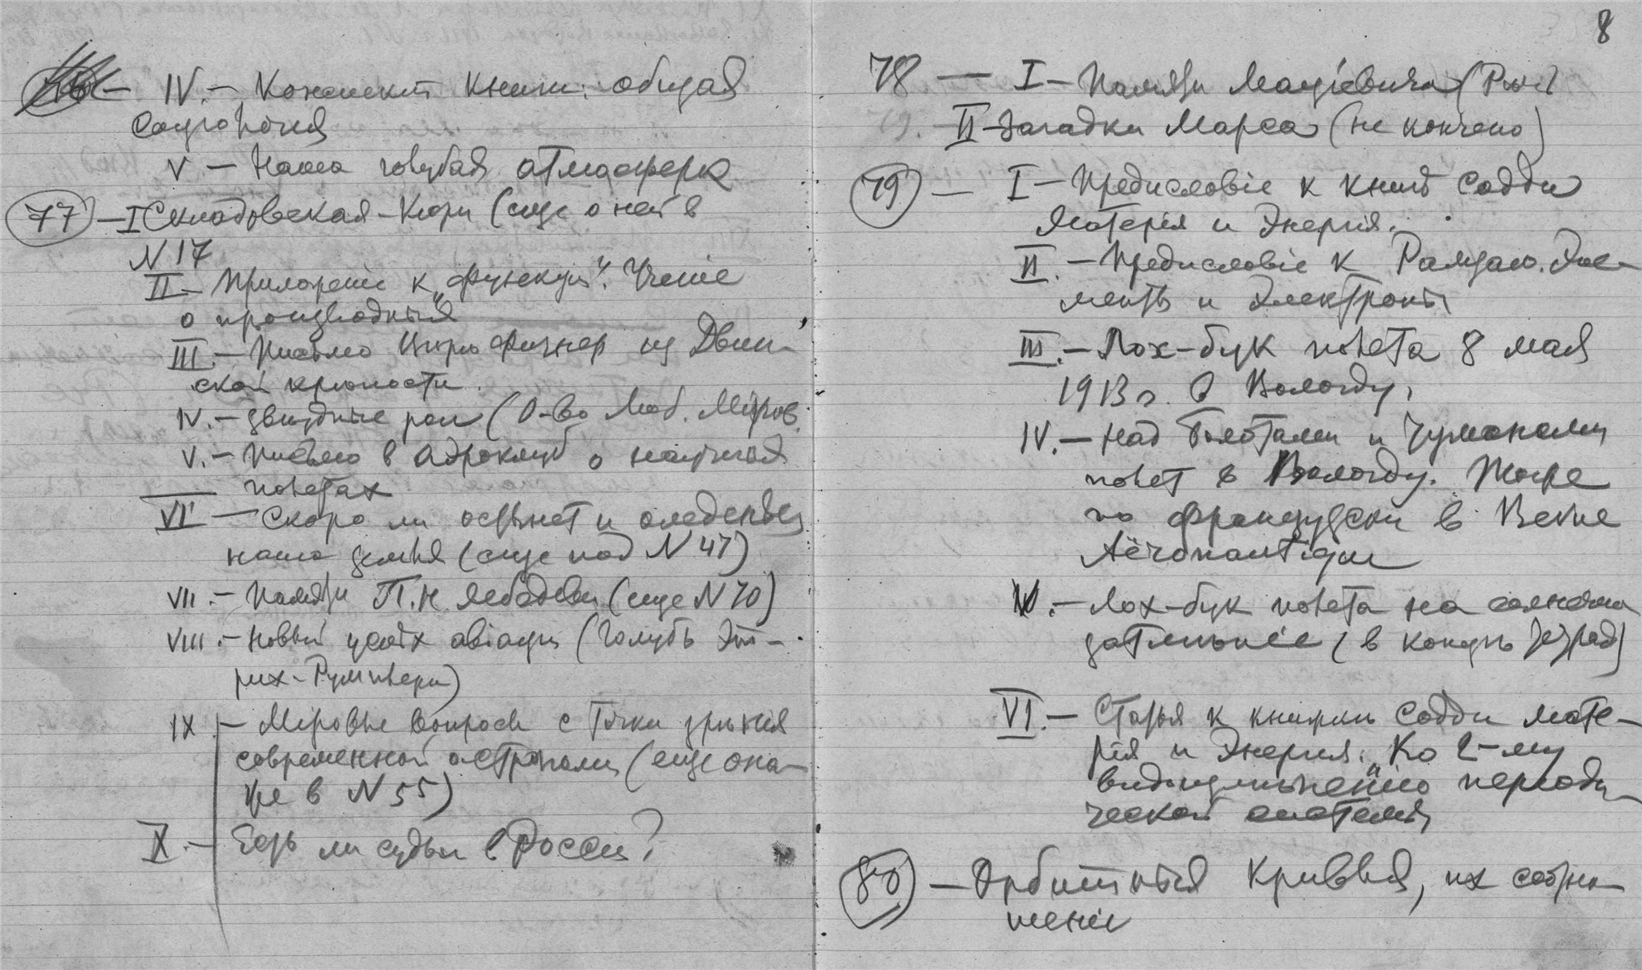 76 - IV. - Конспект книги: общая
социологія
V - Наша голубая атмосфера
77 - I Склодовская-Кюри (еще о ней в
N 17
II - Приложеніе к „функции“. Ученіе
о производных
III. - Письмо Веры Фигнер из Двин-
ской крепости.
IV. - Звездные рои (О-во Люб. Міров.
V. - Письмо в Аэроклуб о научных
полетах
VI - Скоро ли остынет и
наша земля (еще под N 47)
VII. - Памяти П. Н. Лебедева (еще N 70)
VIII. - Новый успех авіаціи (Голубь Эт-
рих-Румплера)
IX - Міровые вопросы с точки зрѣнія
современной астрономіи (еще она
же в N 55)
X. - Есть ли судьи в Россіи?
8
78 - I - Памяти Маціевича (
II - Загадки Марса (не кончено)
79 - I - Предисловіе к книгѣ Содди
Матерія и Энергія.
II. - Предисловіе к Рамзаю. Эле-
менты и Электроны
III. - Лох-бук полета 8 мая
1913 г. в Вологду.
IV. - Над болотами и
полет в Вологду. Тоже
по французски в
Aëronautique
V. - Лох-бук полета на солнечное
затменіе (в концѣ тетради)
VI. - Статья к книгам Содди Мате-
рія и Энергія. „Ко 2-му
видоизмененію періоди-
ческой системы
80 - Орбитныя кривыя, их соотно-
шеніе